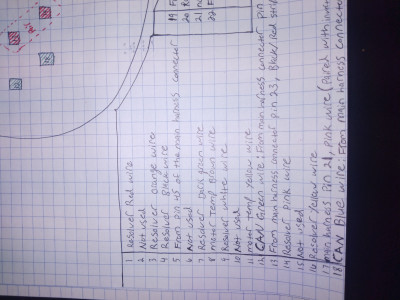 19 F
20 R
21 n
22 F
1 Resolver Red wire
2 Not used
3 Resolver orange wires
4 Resolver Black wire
5 From pin 15 of the main harness connector
6 Not used
7 Resolver Dark green wire
8 motor Temp Brown wire
9 Resolver white wire
10 Not used
11 motor temp yellow wire
12 CAN Green wire: From main harness connector pin
13 From main harness connector pin 23, Black/Red strip
14 Resolver pink wire
15 Not used
16 Resolver Yellow wire
17 main harness pin 21, pink wire (Paired with
18 CAN Blue wire: From main harness connector